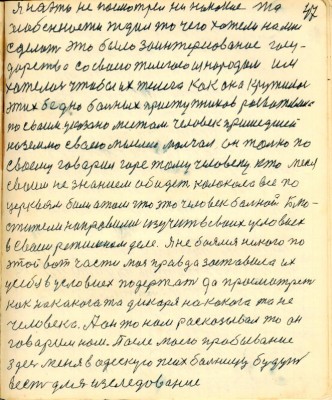 47
Я на то не посмотрел ни никакие та
злобенности ждал то чего хотели нами
сделат это было заинтерисование госу-
дарство со своего тимного народом им
хотелос чтобы их тимога как она крутилос
этих бедно болних приступников
по своим указано метам человек пришедшей
на землю своею молчал он толко по
своему говорил горе тому человеку кто меня
своим не знанием обидет колокола все по
церквям били а там что это человек болной
направили изучить в своих условиех
в своем режимном деле. Я не боялся никого по
этой вот части моя правда заставила их
у себя в условиех подержат да просматреть
как на какога та дикаря на какога та не
человека. А он то нам расказывал то он
говорил нам. После моего пробывание
здес меня в адескую псих болницу будут
вести для изследование